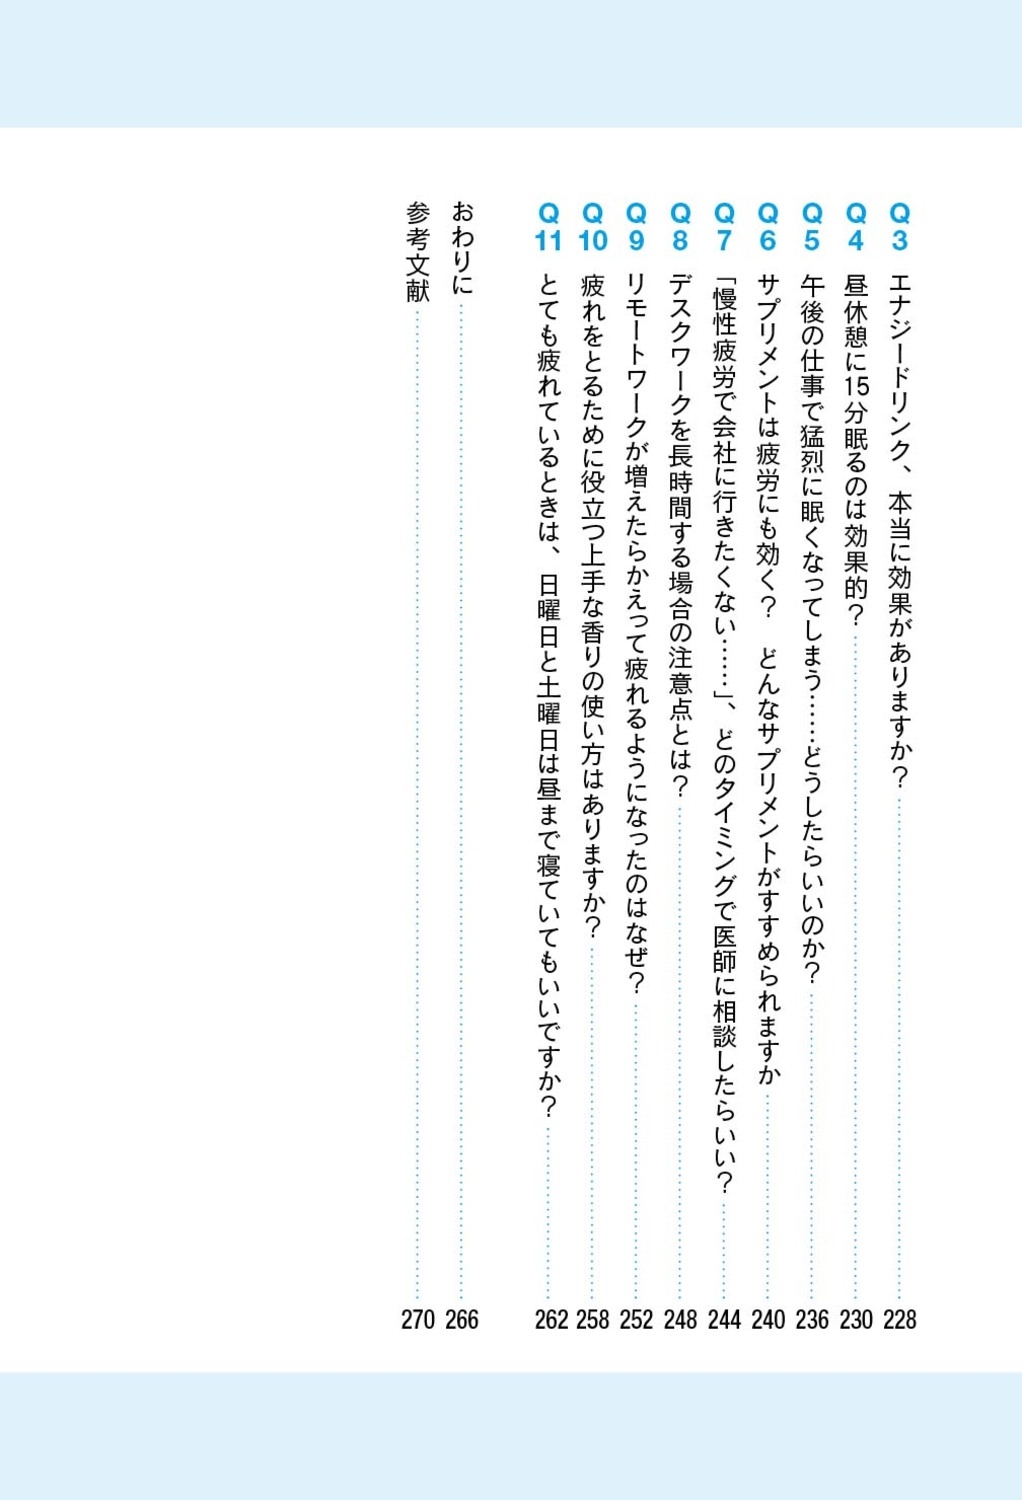 Q3 エナジードリンク、本当に効果がありますか？ 228
Q4 昼休憩に15分眠るのは効果的？ 230
Q5 午後の仕事で猛烈に眠くなってしまう……どうしたらいいのか？ 236
Q6 サプリメントは疲労にも効く？　どんなサプリメントがすすめられますか 240
Q7 「慢性疲労で会社に行きたくない……」、どのタイミングで医師に相談したらいい？ 244
Q8 デスクワークを長時間する場合の注意点とは？ 248
Q9 リモートワークが増えたらかえって疲れるようになったのはなぜ？ 252
Q10 疲れをとるために役立つ上手な香りの使い方はありますか？ 258
Q11 とても疲れているときは、日曜日と土曜日は昼まで寝ていてもいいですか？ 262
おわりに 266
参考文献 270